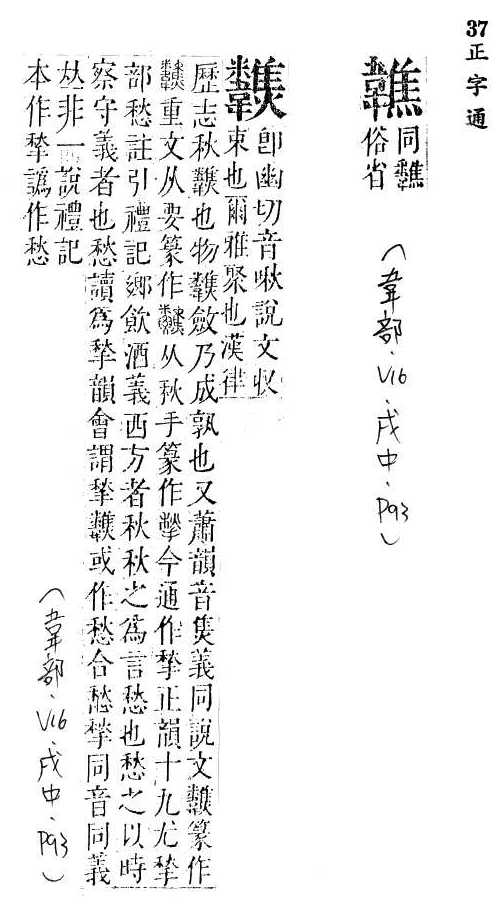 37 正字通
同𩏷
俗省
(韋部.V16.戌中.P93)
𩏷 即幽切音啾說文収
束也爾雅聚也漢律
歷志秋𩏷也物𩏷斂乃成孰也又蕭韻音焦義同說文𩏷篆作
重文从要篆作从秋手篆作今通作揫正韻十九尤揫
部愁註引禮記鄉飲酒義西方者秋秋之為言愁也愁之以時
察守義者也愁讀為揫韻會謂揫𩏷或作愁合愁揫同音同義
𠀤非一說禮記
本作揫譌作愁
(韋部.V16.戌中.P93)